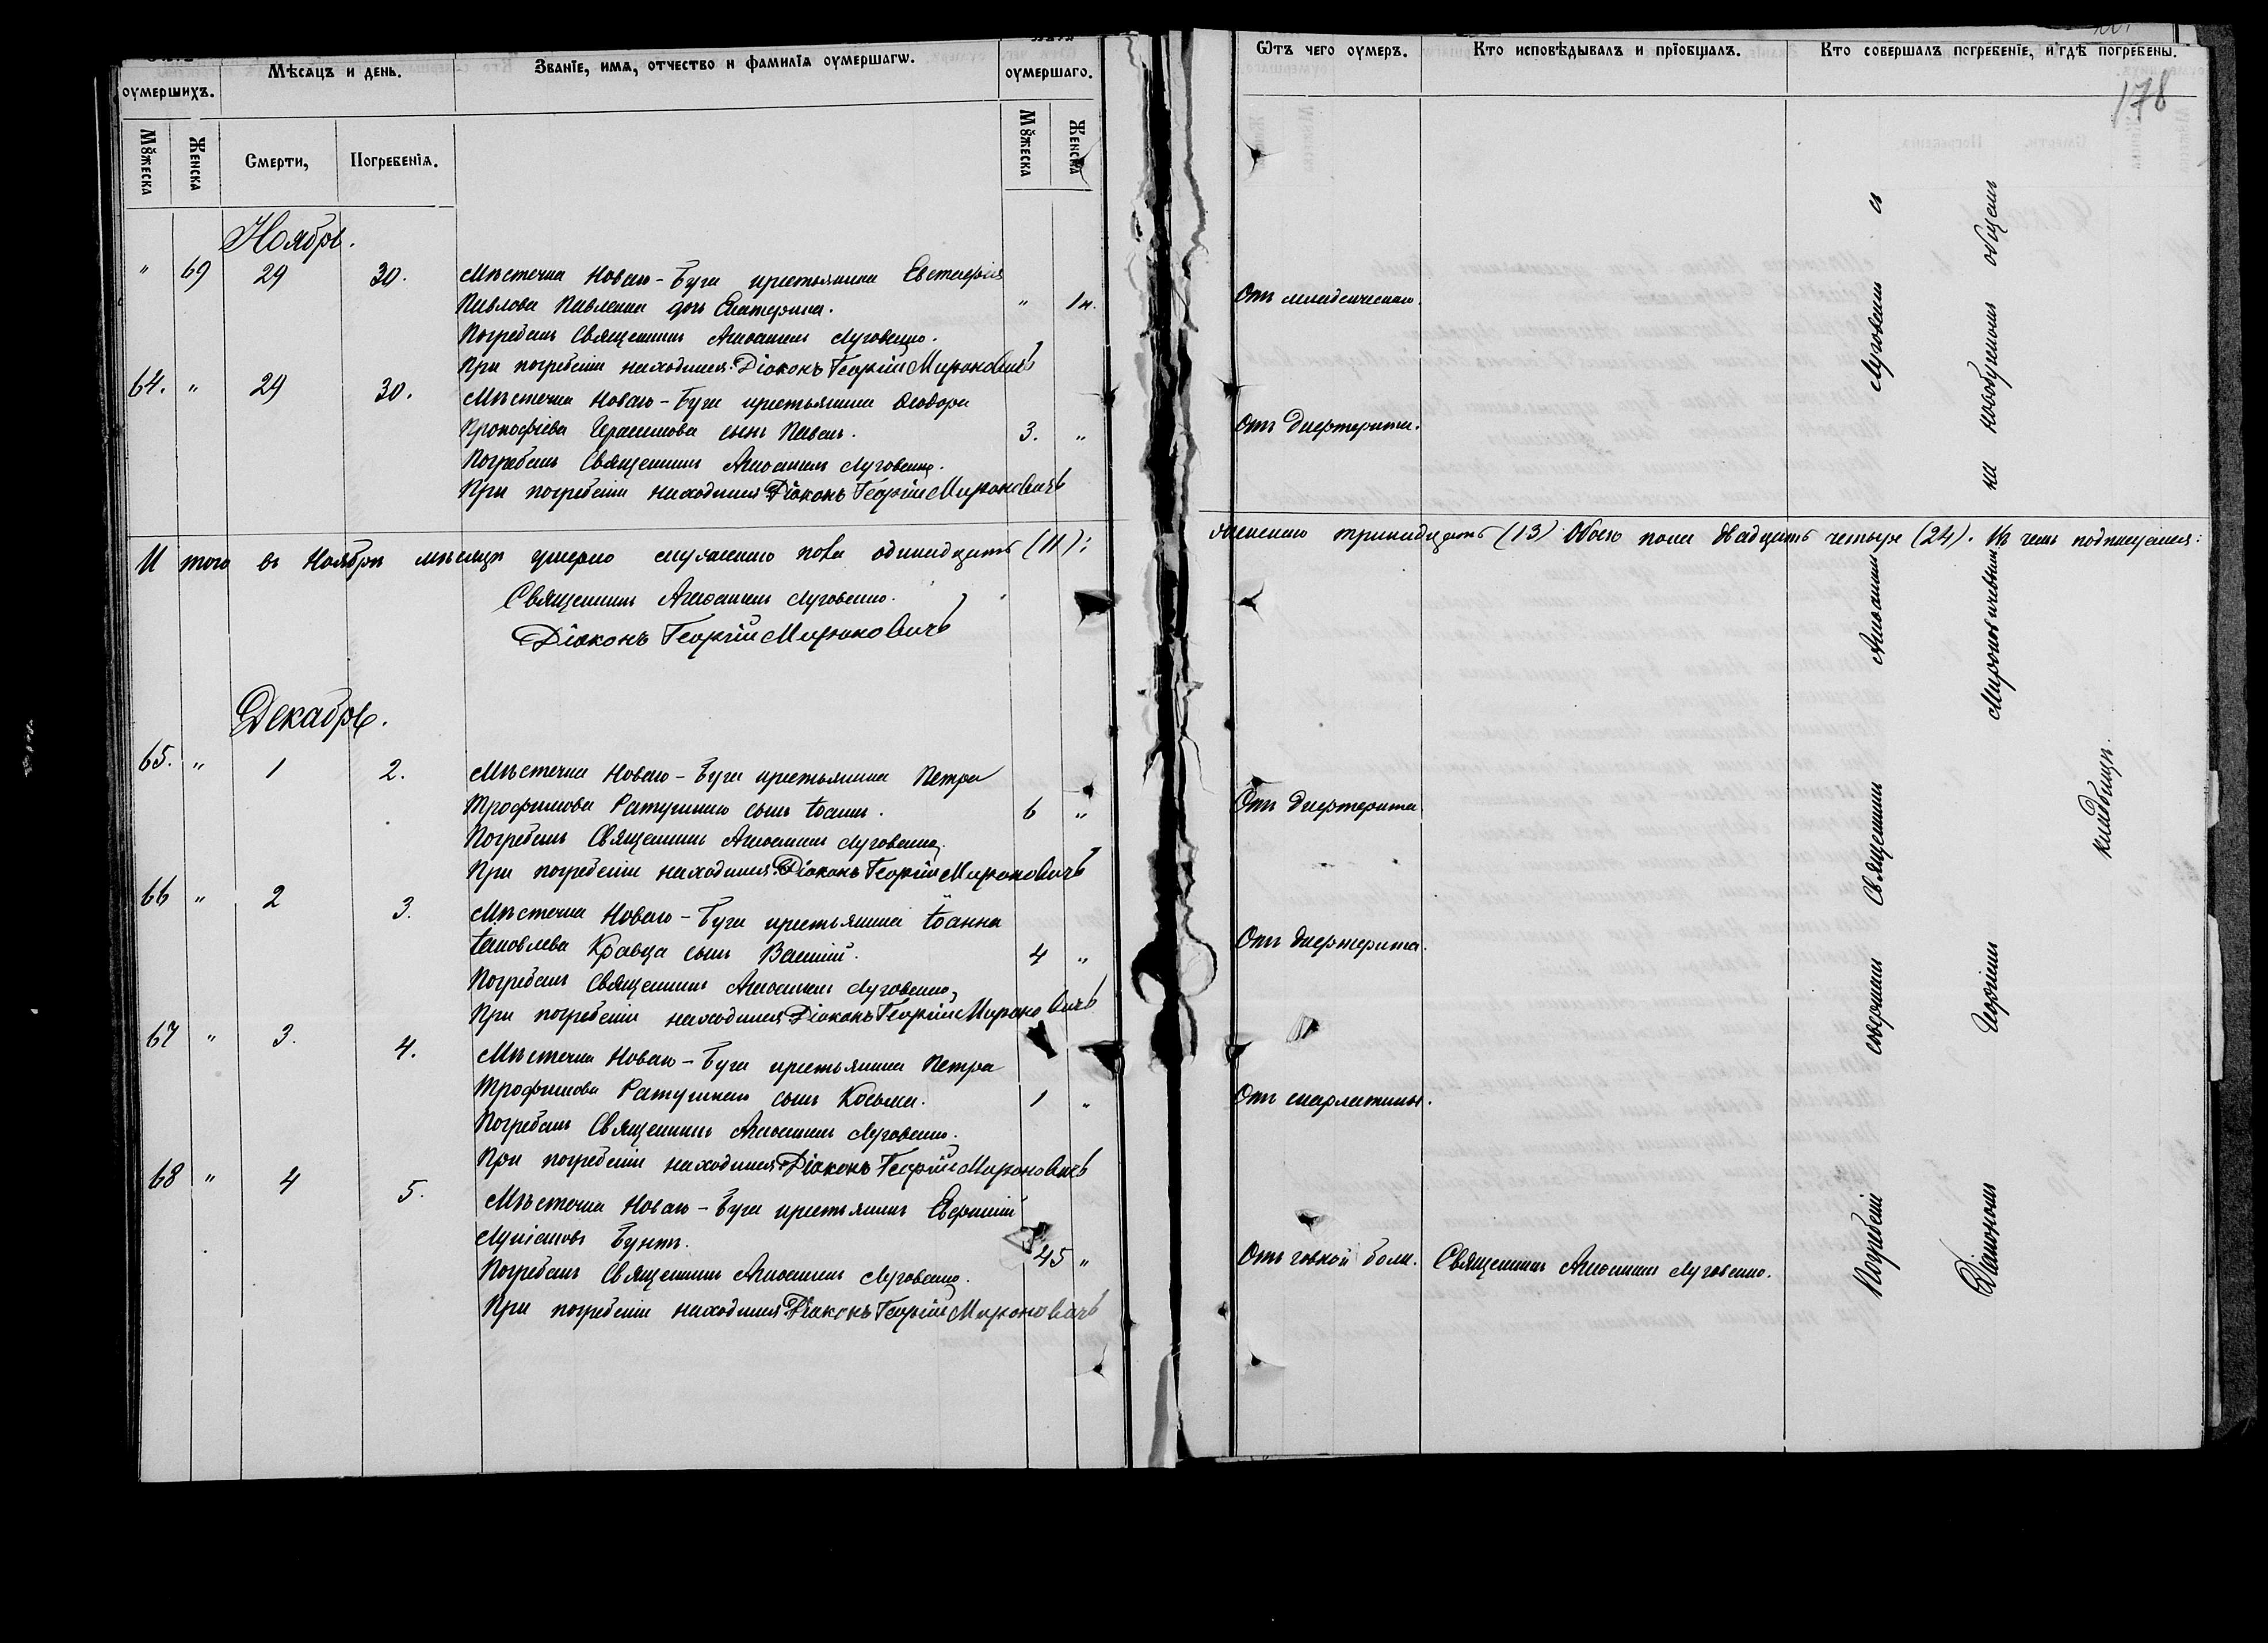 оумершихъ.
Мѣсяцъ и день.
Званїе, имя, отчество и фамилїя оумершагѡ.
оумершаго.
Мꙋжеска
Женска
Смерти,
Погребенїя.
Мꙋжеска
Женска
Ноябрь.
" 69 29 30. Мѣстечка Новаго-Буга крестьянина Евстафія
Павлова Павленка дочь Екатерина. " 1 н.
Погребалъ Священникъ Луговенко.
При погребеніи находился Діаконъ Георгій Мироновичъ
64. " 29 30. Мѣстечка Новаго-Буга крестьянина Ѳеодора
Прокофіева Герасимова сынъ Павелъ. 3. "
Погребалъ Священникъ Луговенко.
При погребеніи находился Діаконъ Георгій Мироновичъ
И того въ Ноябрѣ мѣсяцѣ умерло мужескаго пола одинадцать (11);
Священникъ Луговенко.
Діаконъ Георгій Мироновичъ
Декабрь.
65. " 1 2. Мѣстечка Новаго-Буга крестьянина Петра
Трофимова Ратушняго сынъ Іоаннъ. 6 "
Погребалъ Священникъ Луговенко.
При погребеніи находился Діаконъ Георгій Мироновичъ
66 " 2 3. Мѣстечка Новаго-Буга крестьянина Іоанна
Іаковлева Кравца сынъ Василій. 4 "
Погребалъ Священникъ Луговенко,
При погребеніи находился Діаконъ Георгій Мироновичъ
67 " 3. 4. Мѣстечка Новаго-Буга крестьянина Петра
Трофимова Ратушняго сынъ Косьма. 1 "
Погребалъ Священникъ Луговенко.
При погребеніи находился Діаконъ Георгій Мироновичъ
68 " 4 5. Мѣстечка Новаго-Буга крестьянинъ Евфимій
Лукіановъ Бунтъ. 45 "
Погребалъ Священникъ Луговенко.
При погребеніи находился Діаконъ Георгій Мироновичъ
Ѿтъ чего оумеръ.
Кто исповѣдывалъ и прїобщалъ.
Кто совершалъ погребенїе, и гдѣ погребены.
178
Отъ младенческаго.
Отъ дифтерита.
женскаго тринадцать (13) Обоего пола двадцать четыре (24). Въ чемъ подписуемся:
Отъ дифтерита
Отъ дифтерита.
Отъ скарлатины.
Отъ головной боли. Священникъ Луговенко.
Погребеніе совершалъ Священникъ Луговенко съ
Діакономъ Георгіемъ Мироновичемъ на новобугскомъ общемъ
кладбищѣ.